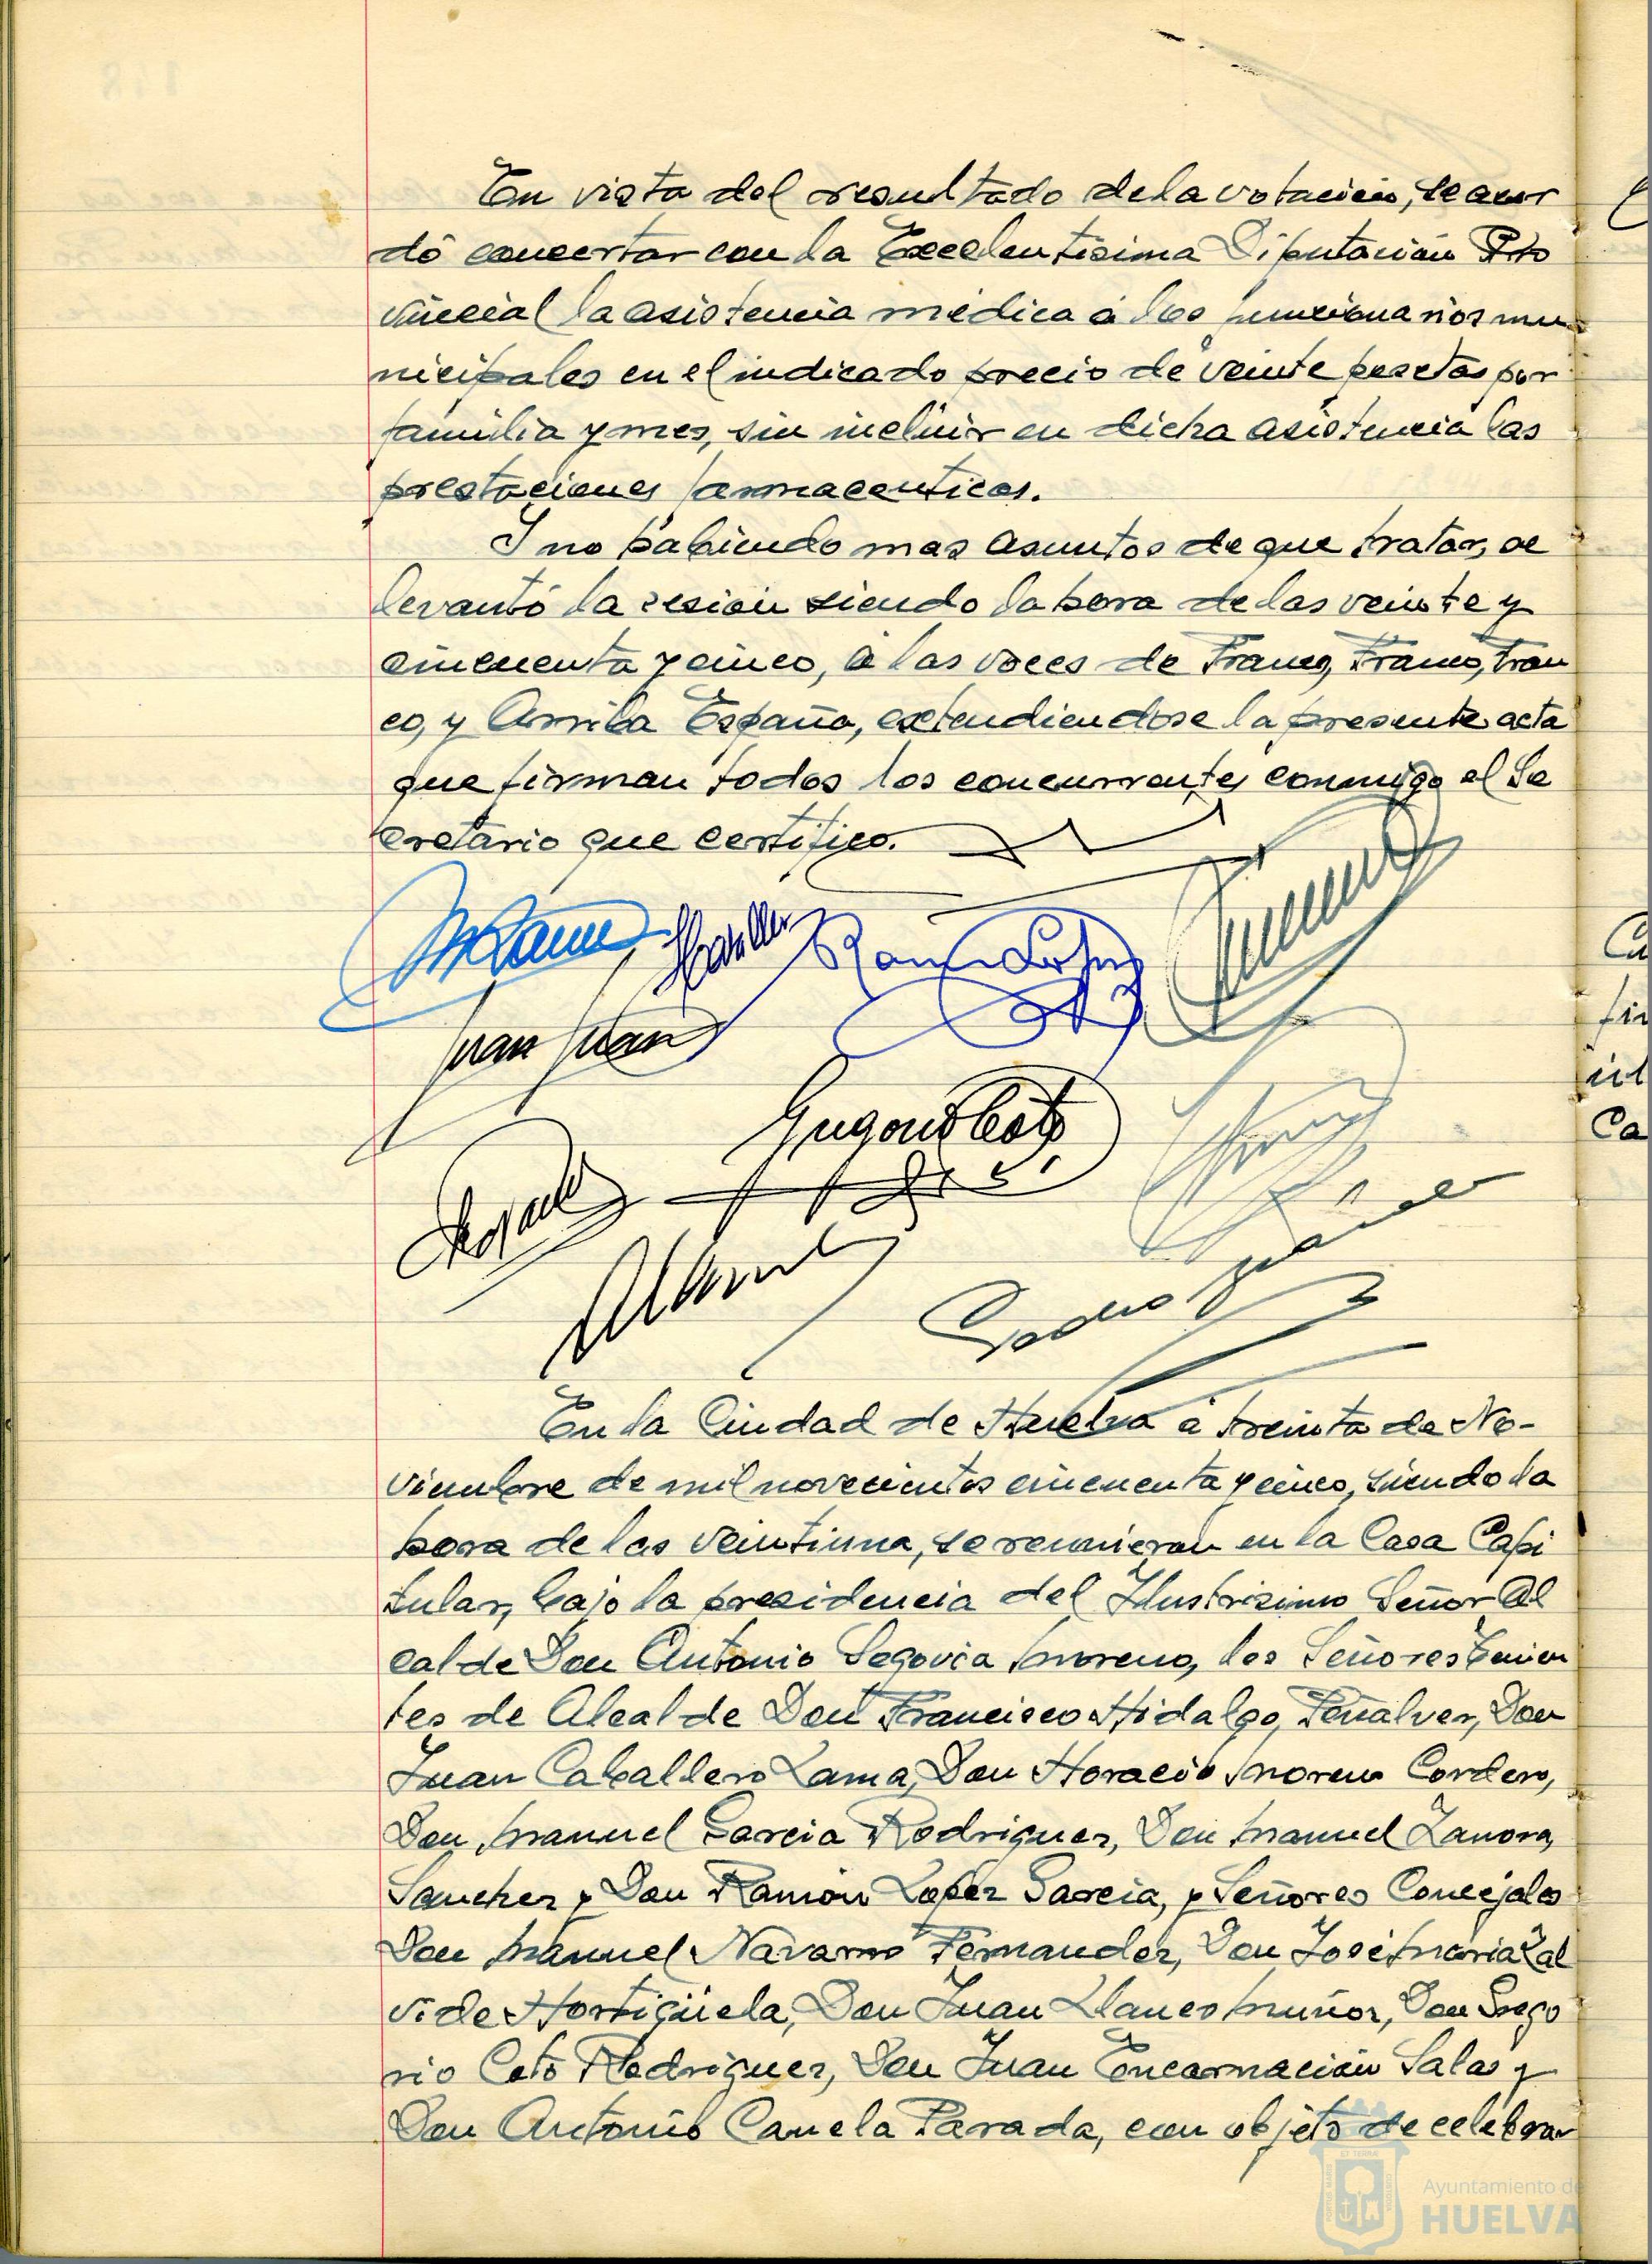 En vista del resultado de la votación, se acor
dó concertar con la Excelentísima Diputación Pro
vincial la asistencia médica á los funcionarios mu
nicipales en el indicado precio de veinte pesetas por
familia y mes, sin incluir en dicha asistencia las
prestaciones farmaceuticas.
Y no habiendo mas asuntos de que tratar, se
levantó la sesión siendo la hora de las veinte y
cincuenta y cinco, á las voces de Franco, Franco, Fran
co, y Arriba España, extendiendose la presente acta
que firman todos los concurrentes conmigo el Se
cretario que certifico.
Ramón López
Juan Juan
Gregorio Coto
En la Ciudad de Huelva á treinta de No-
viembre de mil novecientos cincuenta y cinco, siendo la
hora de las veintiuna, se reunieron en la Casa Capi
tular, bajo la presidencia del Ilustrisimo Señor Al
calde Don Antonio Segovia Moreno, los Señores Tenien
tes de Alcalde Don Francisco Hidalgo Peñalver, Don
Juan Caballero Lama, Don Horacio Moreno Cordero,
Don Manuel Garcia Rodriguez, Don Manuel Zamora
Sanchez y Don Ramón Lopez Garcia, y Señores Concejales
Don Manuel Navarro Fernandez, Don José Maria Zal
vide Hortigüela, Don Juan Llanes Muñoz, Don Grego
rio Coto Rodriguez, Don Juan Encarnación Salas y
Don Antonio Canela Parada, con objeto de celebrar
Ayuntamiento de
HUELVA